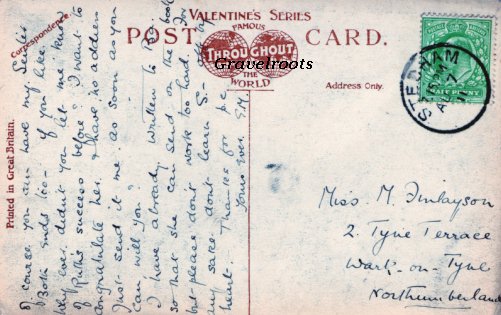 Correspondence.
VALENTINE'S SERIES
FAMOUS
THROUGHOUT
THE
WORLD
POST CARD.
Gravelroots
Address Only.
Printed in Great Britain.
HALF PENNY
Of course you can have my Send
Both ends too - if you like.
Why ever didn't you let me know
of Ruth's success before? I want to
congratulate her & have no address
Just send it me as soon as you
can will you?
I have already written to
so that she can send on the book
but please don't work too hard. For
my sake don't learn S-
heart. Thanks for p.c.
Yours ever. E.M.
Miss. M. Finlayson
2. Tyne Terrace
Wark-on-Tyne
Northumberland